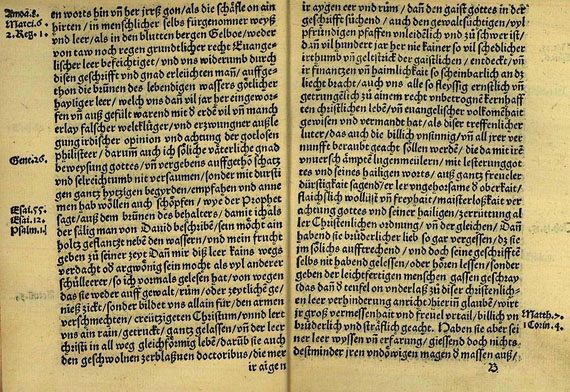 Amos.8.
Marci.6
2.Reg. 1.
Gene. 26.
Esai. 55.
Esai. 12.
Psalm. 1.
en worts hin vñ her jrrß gon/als die schäfle on ain
hirten/ in menschlicher selbs fürgenomner weyß
vnd leer/als in den blutten bergen Gelboe/weder
von taw noch regen grundtlicher recht Euange-
lischer leer befeichtiget/vnd vns widerumb durch
disen geschrifft vnd gnad erleüchten mañ/ auffge-
thon die brünen des lebendigen wassers götlicher
hayliger leer/ welch vns dañ vil jar her eingewor-
fen vñ auß gefült waren mit ð erde vil vñ manch
erlay falscher weltklüger/vnd erzwungner außle
gung irdischer opinion vnd achtung der gotlosen
philisteer / darum̃ auch ich söliche väterliche gnad
beweysung gottes/vñ vergebens auffgethõ schatz
vnd selreichtumb nit versaumen/sonder mit dursti
gen gantz hytzigen begyrden/empfahen vnd anne
men hab wöllen auch schöpfen/ wye der Prophet
sagt/auß dem brünen des behalters/damit ich als
der sälig man von Dauid beschribẽ/sein möcht ain
holtz gepflantzt nebẽ den wassern/vnd mein frucht
geben zu seiner zeyt Dañ mir diß leer kains wegs
verdacht oð argwönig sein mocht als vyl anderer
schülleerer/so ich vormals gelesen hat/von wegen
das sie weder auff gewalt/rům/ oder zeytliche ge-
nieß zickt/sonder bilder vns allain für/den armen
verschmechten/creützigeten Christum/vnnd lert
vns ain rain/getruckt/ gantz gelassen/vñ der leer
christi in all weg gleichförmig lebẽ/darüb sie auch
den geschwolnen zerblaßnen doctoribus/die mer
ir aigen
ir aygen eer vnd rům/ dañ den gaist gottes in der
geschrifft süchend / auch den gewaltsüchtigen/vyl
pfründigen pfaffen vnleidẽlich vnd zu schwer ist/
dañ vil hundert jar her nie kainer so vil schedlicher
irthumb vñ geletzstrick der gaistlichen / entdeckt/vñ
ir finantzen vñ haimlichkait so scheinbarlich an dz
liecht bracht/auch vns alle so fleyssig ernstlich vñ
getrungẽlich zu ainem recht vnbetrognẽ kernhaff
ten christlichen lebẽ/vñ euangelischer volkomẽhait
gewisen vnd vermandt hat/als diser treffenlicher
luter/das auch die billich vnsinnig/vñ all jrer ver
nunfft beraubt geacht söllen werdẽ/ die da mit ẽ
vnuerschämptẽ lugenmeülern/ mit lesterung got
tes vnd seines hailigen worts/ auß gantz freueler
dürstigkait sagend/er ler vngehorsame ð oberkait/
flaischlich wollust vñ freyhait/maisterloßkait ver
achtung gottes vnd seiner hailigen/zerrittung al
ler Christenlichen ordnung/ vñ der gleichen/ Dañ
habend die brüderlicher lieb so gar vergessen/ dz sie
jm sölichs auffrechend/ vnd doch seine geschrifftẽ
selbs nit habend gelesen/oder hören lesen/ sonder
geben der leichtfertigen menschen gassen geschray
das dañ ð teufel on vnderlaß zů diser christenlich
en leer verhinderung anricht/hierin̄ glaubẽ/wirt
jr groß vermessenhait vnd freuel vrtail/billich vn
brüderlich vnd sträflich geacht. Haben sie aber sei
ner leer wyssen vñ erfarung/giessend doch nichts
destminder jren vndöwigen magen ð massen auß/
B
Matth. 7.
1 Corin. 4.